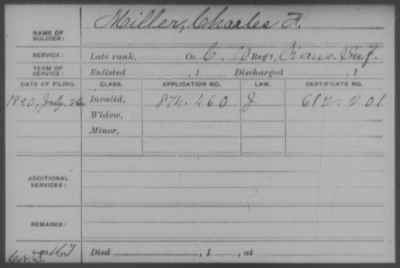 Miller, Charles F.
NAME OF SOLDIER:
SERVICE: Late rank, Co. C, 10 Reg't Kans. Inf.
TERM OF SERVICE: Enlisted , 1 Discharged , 1
DATE OF FILING. CLASS. APPLICATION NO. LAW. CERTIFICATE NO.
1890, July, 26 Invalid, 874.460 J. 612.201
Widow,
Minor,
ADDITIONAL SERVICES:
REMARKS:
Died , 1 , at